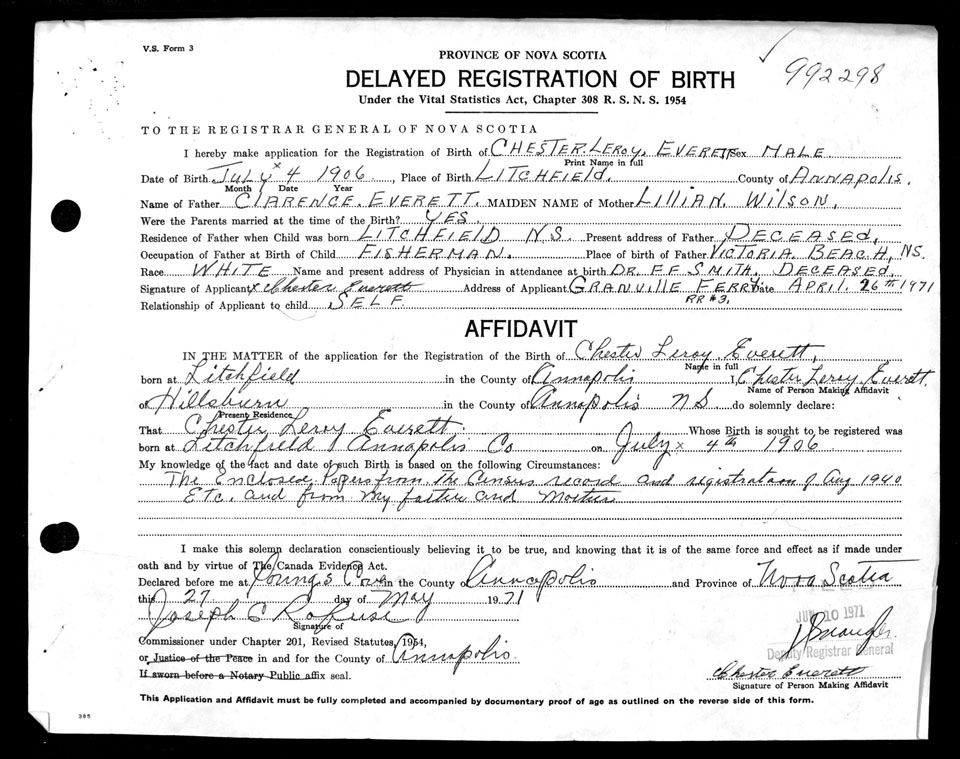 V.S. Form 3
PROVINCE OF NOVA SCOTIA
992298
DELAYED REGISTRATION OF BIRTH
Under the Vital Statistics Act, Chapter 308 R. S. N. S. 1954
TO THE REGISTRAR GENERAL OF NOVA SCOTIA
I hereby make application for the Registration of Birth of CHESTER LEROY. EVERETT Sex MALE
Print Name in full
Date of Birth JULY x 4 1906, Place of Birth LITCHFIELD. County of ANNAPOLIS.
Month Date Year
Name of Father CLARENCE. EVERETT. MAIDEN NAME of Mother LILLIAN. WILSON.
Were the Parents married at the time of the Birth? YES.
Residence of Father when Child was born LITCHFIELD N.S. Present address of Father DECEASED,
Occupation of Father at Birth of Child FISHERMAN. Place of birth of Father VICTORIA. BEACH, N.S.
Race WHITE Name and present address of Physician in attendance at birth DR. F.F. SMITH. DECEASED.
Signature of Applicant x Chester Everett Address of Applicant GRANVILLE FERRY Date APRIL. 26th 1971
RR #3,
Relationship of Applicant to child SELF
AFFIDAVIT
IN THE MATTER of the application for the Registration of the Birth of Chester Leroy Everett,
Name in full
born at Litchfield in the County of Annapolis I, Chester Leroy Everett,
Name of Person Making Affidavit
of Hillsburn in the County of Annapolis NS do solemnly declare:
Present Residence
That Chester Leroy Everett Whose Birth is sought to be registered was
born at Litchfield Annapolis Co on July x 4th 1906
My knowledge of the fact and date of such Birth is based on the following Circumstances:
The Enclosed Papers from The Census record and registration of Aug 1940
Etc. and from my father and
I make this solemn declaration conscientiously believing it to be true, and knowing that it is of the same force and effect as if made under
oath and by virtue of The Canada Evidence Act.
Declared before me at Youngs Cove in the County of Annapolis and Province of Nova Scotia
this 27 day of May 1971
JUN 10 1971
Joseph C Rafuse
Signature of
Commissioner under Chapter 201, Revised Statutes, 1954,
Deputy Registrar General
or Justice of the Peace in and for the County of Annapolis.
If sworn before a Notary Public affix seal.
Chester Everett
Signature of Person Making Affidavit
This Application and Affidavit must be fully completed and accompanied by documentary proof of age as outlined on the reverse side of this form.
385